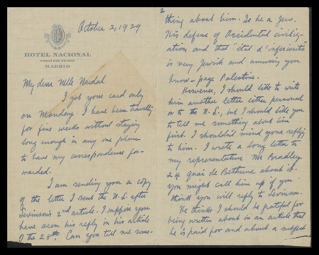 October 2, 1929
HOTEL NACIONAL
MADRID
My dear Mlle Nadal
I got your card only
on Monday. I have been traveling
for five weeks without staying
long enough in any one place
to have my correspondence for-
warded.
I am sending you a copy
of the letter I sent the N.L. after
Levinson's 2nd article. I suppose you
have seen his reply in his article
of the 28th. Can you tell me some-
2
thing about him. Is he a Jew.
His defense of Occidental civiliza-
tion and that
is very Jewish and
know - page Palestine.
However, I should like to write
him another letter either personal
or to the N.L., but I should like you
to tell me something about him
first. I shouldn't mind your reply
to him. I wrote a long letter to
my representative Mr Bradley
24 quai de Bethune about it.
You might call him up if you
think you will reply to Levinson.
He thinks I should be grateful for
being written about in an article that
he is paid for and about a subject